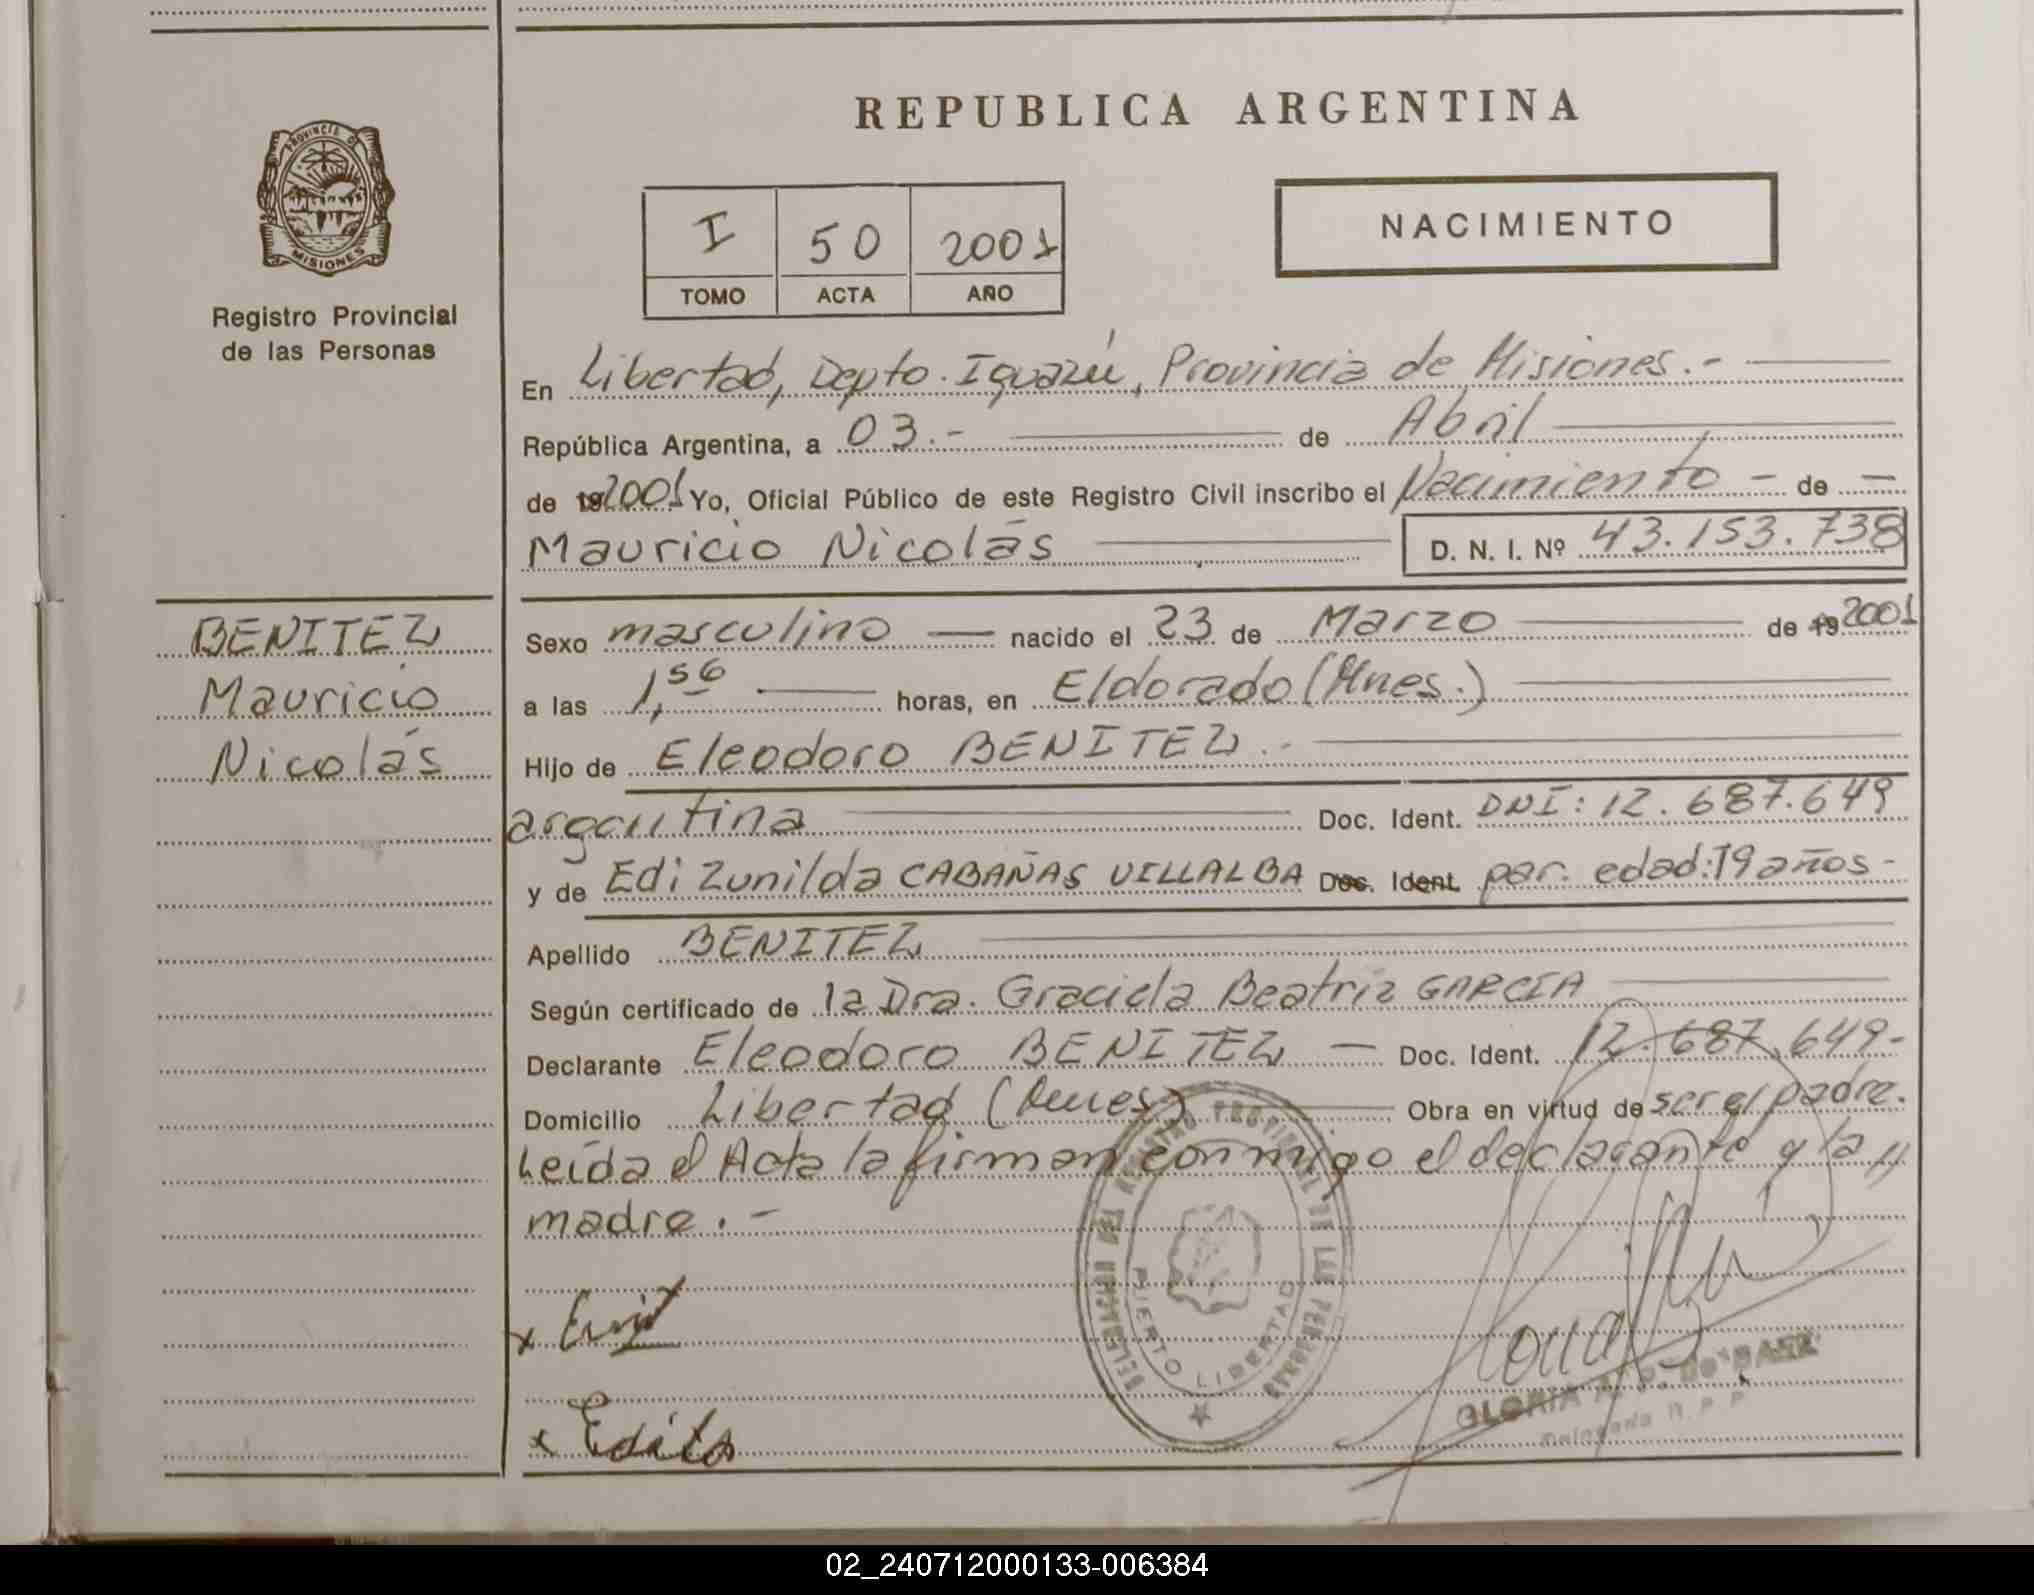 PROVINCIA DE
MISIONES
Registro Provincial
de las Personas
BENITEZ
Mauricio
Nicolás
REPUBLICA ARGENTINA
I 50 2001
TOMO ACTA AÑO
NACIMIENTO
En Libertad, Depto. Iguazú, Provincia de Misiones.-
República Argentina, a 03.- de Abril
de 19 2001 Yo, Oficial Público de este Registro Civil inscribo el Nacimiento - de -
Mauricio Nicolás D. N. I. Nº 43.153.738
Sexo masculino nacido el 23 de Marzo de 19 2001
a las 1,56 horas, en Eldorado (Mnes.)
Hijo de Eleodoro BENITEZ.-
argentina Doc. Ident. DNI: 12.687.649
y de Edi Zunilda CABAÑAS VILLALBA Doc. Ident. par. edad: 19 años-
Apellido BENITEZ
Según certificado de la Dra. Graciela Beatriz GARCÍA
Declarante Eleodoro BENITEZ - Doc. Ident. 12.687.649-
Domicilio Libertad (Mnes) Obra en virtud de ser el padre.
Leída el Acta la firman conmigo el declarante y la //
madre.-
DELEGACION DEL REGISTRO PROVINCIAL DE LAS PERSONAS
PUERTO LIBERTAD
x
x Edith
GLORIA
Delegada R.P.P.
02_240712000133-006384